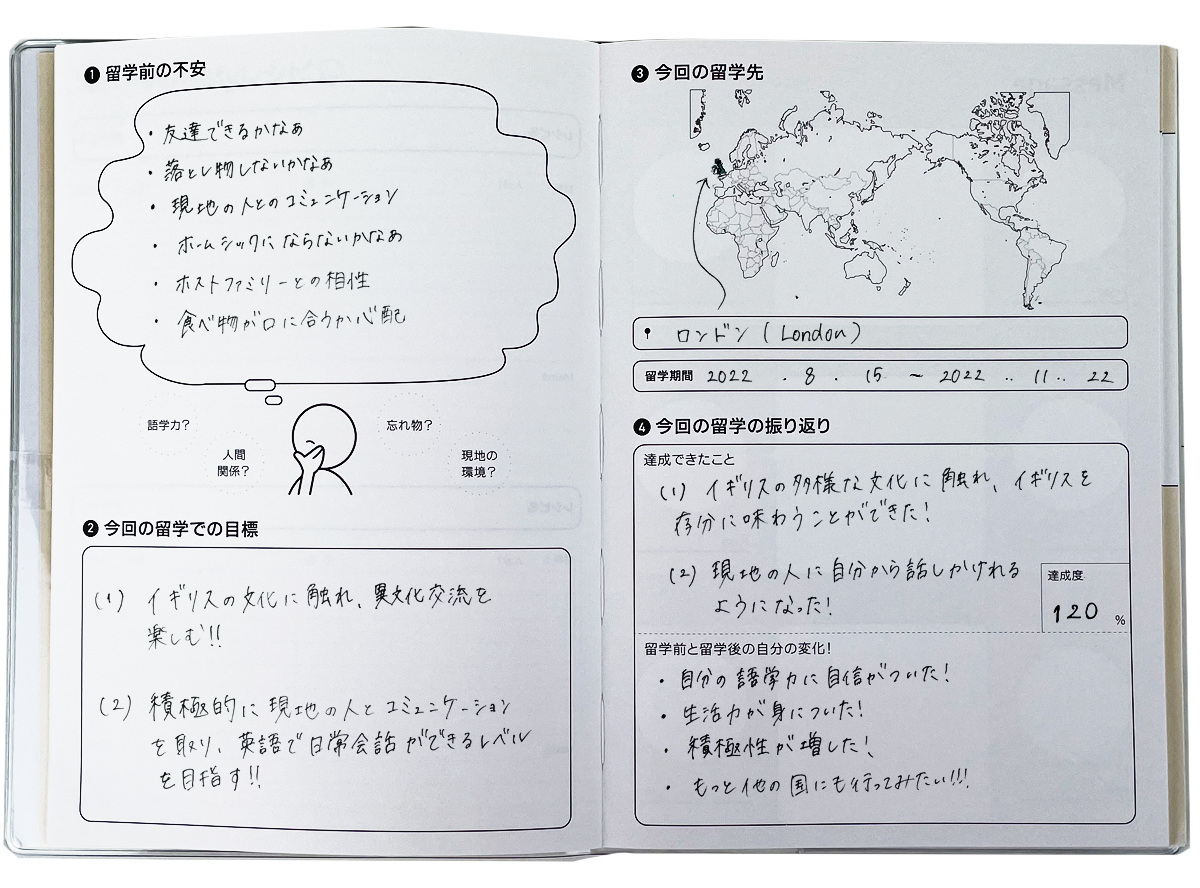 ❶ 留学前の不安
・友達できるかなぁ
・落とし物しないかなぁ
・現地の人とのコミュニケーション
・ホームシックにならないかなぁ
・ホストファミリーとの相性
・食べ物が口に合うか心配
語学力?
人間
関係?
忘れ物?
現地の
環境?
❷ 今回の留学での目標
(1) イギリスの文化に触れ、異文化交流を
楽しむ!!
(2) 積極的に現地の人とコミュニケーション
を取り、英語で日常会話ができるレベル
を目指す!!
❸ 今回の留学先
ロンドン (London)
留学期間 2022 . 8 . 15 ~ 2022 .. 11 .. 22
❹ 今回の留学の振り返り
達成できたこと
(1) イギリスの多様な文化に触れ、イギリスを
存分に味わうことができた!
(2) 現地の人に自分から話しかけれる
ようになった!
達成度
120 %
留学前と留学後の自分の変化!
・自分の語学力に自信がついた!
・生活力が身についた!
・積極性が増した!
・もっと他の国にも行ってみたい!!!